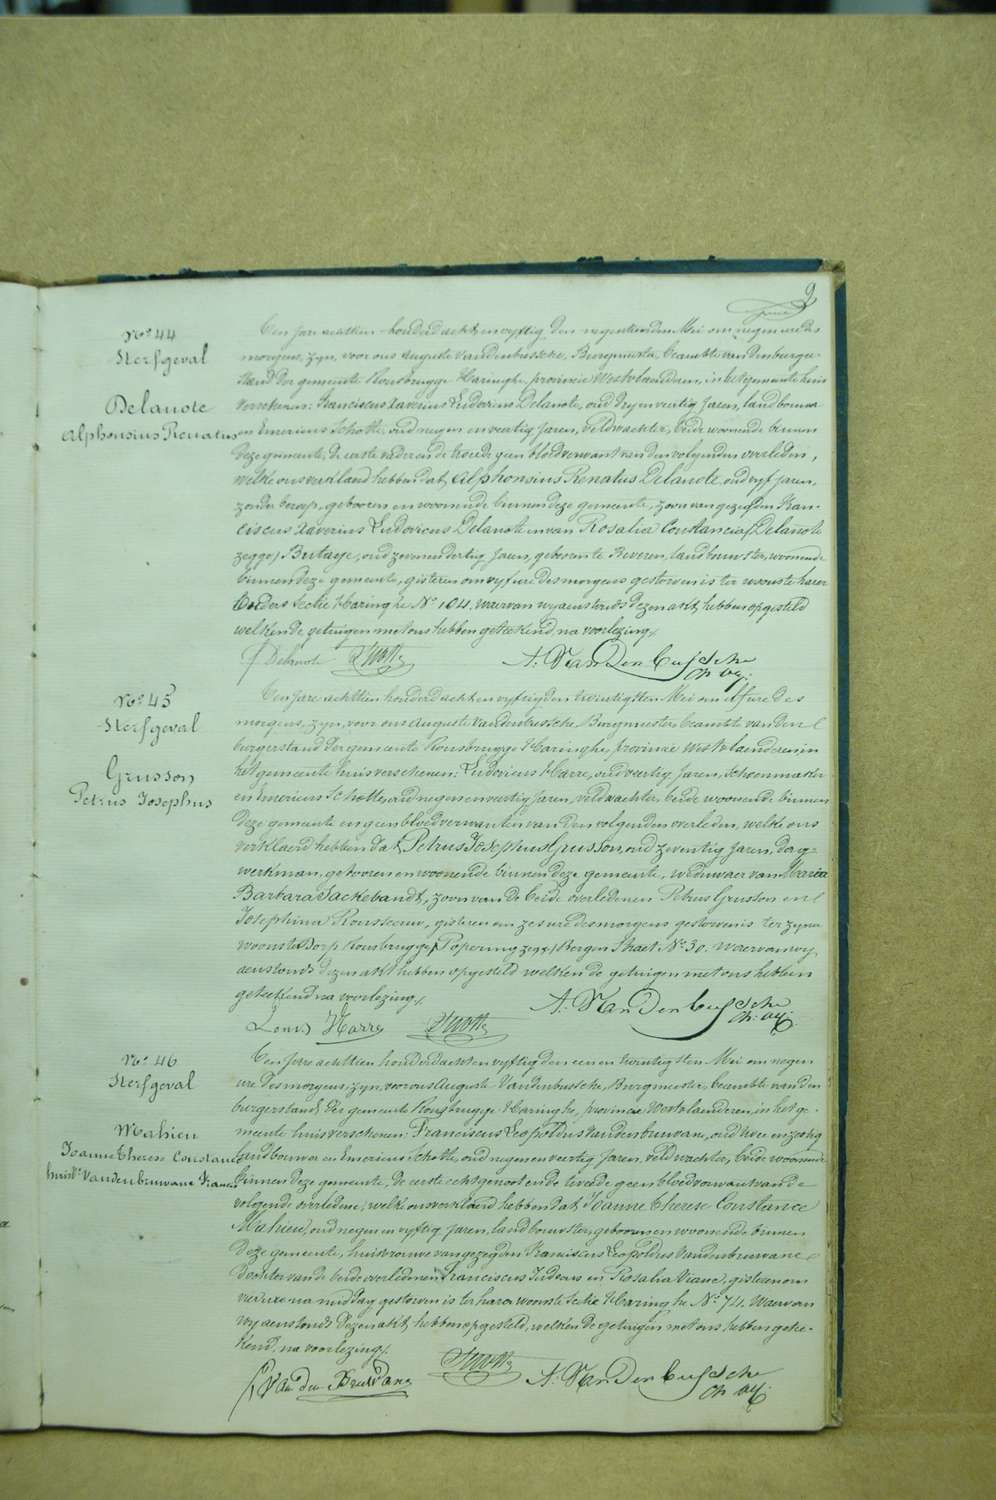 9
Nº 44
Sterfgeval
Delanote
Alphonsius Renatus
Een jare achttien honderd acht en vyftig den negentienden Mei om negen ure des
morgens, zyn, voor ons Auguste Vandenbussche, Burgmeester, beambte van den burger-
stand der gemeente Rousbrugge Haringhe, provincie Westvlaenderen, in het gemeente huis
verschenen: Franciscus Xaverius Ludovicus Delanote, oud en veertig jaren, landbouwer
en Emericus Schotte, oud negen en veertig jaren, veldwachter, beide woonende binnen
deze gemeente, de eerste vader en de tweede geen bloedverwant van den volgenden overleden,
welke ons verklaerd hebben dat, Alphonsius Renatus Delanote, oud vyf jaren,
zonder beroep, geboren en woonende binnen deze gemeente, zoon van gezegden Fran-
ciscus Xaverius Ludovicus Delanote en van Rosalia Constancia (Delanote
zegge) Butaye, oud zeven en dertig jaren, geboortig te Beveren, landbouwster, woonende
binnen deze gemeente, gisteren om vyf ure des morgens gestorven is ter woonste harer
Ouders Sectie Haringhe Nº 164, waervan wy aenstonds dezen akt hebben opgesteld
welken de getuigen met ons hebben geteekend na voorlezing./.
F Delanote Schotte A. VanDenbussche
Nº 45
Sterfgeval
Grusson
Petrus Josephus
Een jare achttien honderd acht en vyftig den twintigsten Mei om elf ure des
morgens, zyn, voor ons Auguste Vandenbussche, Burgmeester, beambte van den
burgerstand der gemeente Rousbrugge Haringhe, provincie Westvlaenderen, in
het gemeente huis verschenen: Ludovicus Harre, oud veertig jaren, schoenmaker
en Emericus Schotte, oud negen en veertig jaren, veldwachter, beide woonende binnen
deze gemeente en geen bloedverwanten van den volgenden overleden, welke ons
verklaerd hebben dat, Petrus Josephus Grusson, oud zeventig jaren, dag-
werkman, geboren en woonende binnen deze gemeente, weduwaer van Maria
Barbara Sackebandt, zoon van de beide overledenen Petrus Grusson en
Josephina Rousseeuw, gisteren om zes ure des morgens gestorven is ter zyner
woonste Dorp Rousbrugge (Popering zegge) Bergen Straet Nº 30. Waervan wy
aenstonds dezen akt hebben opgesteld welken de getuigen met ons hebben
geteekend na voorlezing./.
Louis Harre Schotte A. VanDenbussche
Nº 46
Sterfgeval
Mahieu
Joanne Therese Constance
huisv. Vandenbruwane Francis
Een jare achttien honderd acht en vyftig den een en twintigsten Mei om negen
ure des morgens, zyn, voor ons Auguste Vandenbussche, Burgmeester, beambte van den
burgerstand der gemeente Rousbrugge Haringhe, provincie Westvlaenderen, in het ge-
meente huis verschenen: Franciscus Leopoldus Vandenbruwane, oud twee en zestig
landbouwer en Emericus Schotte, oud negen en veertig jaren, veldwachter, beide woonende
binnen deze gemeente, de eerste echtgenoot en de tweede geen bloedverwant van de
volgende overledene, welke ons verklaerd hebben dat Joanne Therese Constance
Mahieu, oud negen en vyftig jaren, landbouwster, geboren en woonende binnen
deze gemeente, huisvrouwe van gezegden Franciscus Leopoldus Vandenbruwane
dochter van de beide overledenen Franciscus Judocus en Rosalia Vrane, gisteren om
vier ure na middag gestorven is ter harer woonste Sectie Haringhe Nº 74. Waervan
wy aenstonds dezen akt hebben opgesteld, welken de getuigen met ons hebben getee-
kend, na voorlezing./.
F L Van den Bruwane Schotte A. VanDenbussche